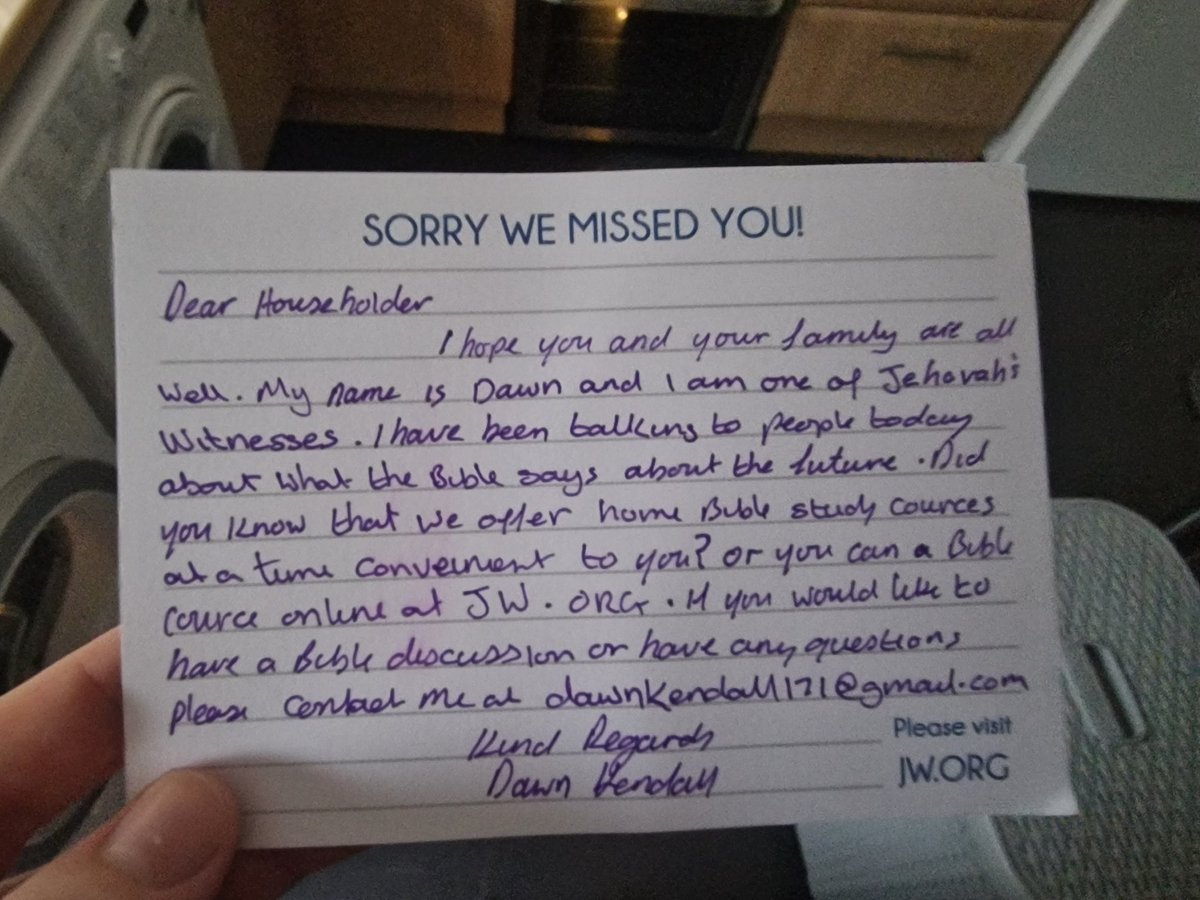 SORRY WE MISSED YOU!
Dear Householder
I hope you and your family are all
well. My name is Dawn and I am one of Jehovah's
Witnesses. I have been talking to people today
about what the Bible says about the future. Did
you know that we offer home Bible study cources
at a time conveinent to you? or you can a Bible
cource online at JW.ORG. If you would like to
have a Bible discussion or have any questions
please contact me at dawnkendall171@gmail.com
Kind Regards
Dawn Kendall
Please visit
JW.ORG